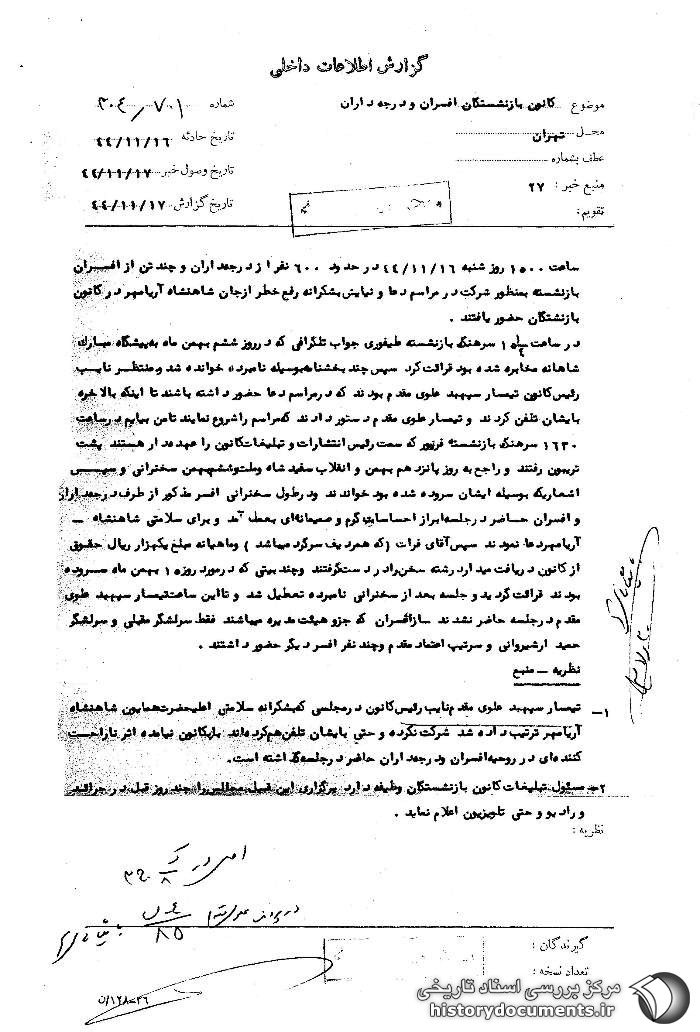 گزارش اطلاعات داخلی
موضوع کانون بازنشستگان افسران و درجه داران
شماره ۳۰۴/۷۰۱
محل تهران
تاریخ حادثه ۴۴/۱۱/۱۶
عطف بشماره
تاریخ وصول خبر ۴۴/۱۱/۱۷
منبع خبر : ۲۷
تاریخ گزارش ۴۴/۱۱/۱۷
تقویم:
ساعت ۱۵۰۰ روز شنبه ۴۴/۱۱/۱۶ در حدود ۶۰۰ نفر از درجه داران و چند تن از افسران
بازنشسته بمنظور شرکت در مراسم دعا و نیایش بشکرانه رفع خطر از جان شاهنشاه آریامهر در کانون
بازنشستگان حضور یافتند .
در ساعت سرهنگ بازنشسته طیفوری جواب تلگرافی که در روز ششم بهمن ماه به پیشگاه مبارک
شاهانه مخابره شده بود قرائت کرد سپس چند بخشنامه بوسیله نامبرده خوانده شد و منتظر نایب
رئیس کانون تیمسار سپهبد علوی مقدم بودند که در مراسم دعا حضور داشته باشند تا اینکه بالاخره
بایشان تلفن کردند و تیمسار علوی مقدم دستور دادند که مراسم را شروع نمایند تا من بیایم در ساعت
۱۶۳۰ سرهنگ بازنشسته فرزپور که سمت رئیس انتشارات و تبلیغات کانون را عهده دار هستند پشت
تریبون رفتند و راجع به روز پانزدهم بهمن و انقلاب سفید شاه و ملت و ششم بهمن سخنرانی و سپس
اشعاریکه بوسیله ایشان سروده شده بود خواندند و در طول سخنرانی افسر مذکور از طرف درجه داران
و افسران حاضر در جلسه ابراز احساسات گرم و صمیمانه ای بعمل آمد و برای سلامتی شاهنشاه –
آریامهر دعا نمودند سپس آقای فرات (که همردیف سرگرد میباشد ) و ماهیانه مبلغ یکهزار ریال حقوق
از کانون دریافت میدارد رشته سخن را در دست گرفتند و چند بیتی که در مورد روز ۱۵ بهمن ماه سروده
بودند قرائت گردید و جلسه بعد از سخنرانی نامبرده تعطیل شد و تا این ساعت تیمسار سپهبد علوی
مقدم در جلسه حاضر نشدند از افسران که جزو هیئت مدیره میباشند فقط سرلشگر مقبلی و سرلشگر
حمید ارشیروانی و سرتیپ اعتماد مقدم و چند نفر افسر دیگر حضور داشتند .
نظریه – منبع
۱– تیمسار سپهبد علوی مقدم نایب رئیس کانون در مجلسی که بشکرانه سلامتی اعلیحضرت همایون شاهنشاه
آریامهر ترتیب داده شد شرکت نکرده و حتی بایشان تلفن هم کرده اند باز بکانون نیامده اثر ناراحت
کننده ای در روحیه افسران و درجه داران حاضر در جلسه گذاشته است.
۲– مسئول تبلیغات کانون بازنشستگان وظیفه دارد برگزاری این قبیل مجالس را چند روز قبل در جرائد
و رادیو و حتی تلویزیون اعلام نماید .
نظریه :
گیرندگان :
تعداد نسخه :
مرکز بررسی اسناد تاریخی
historydocuments.ir